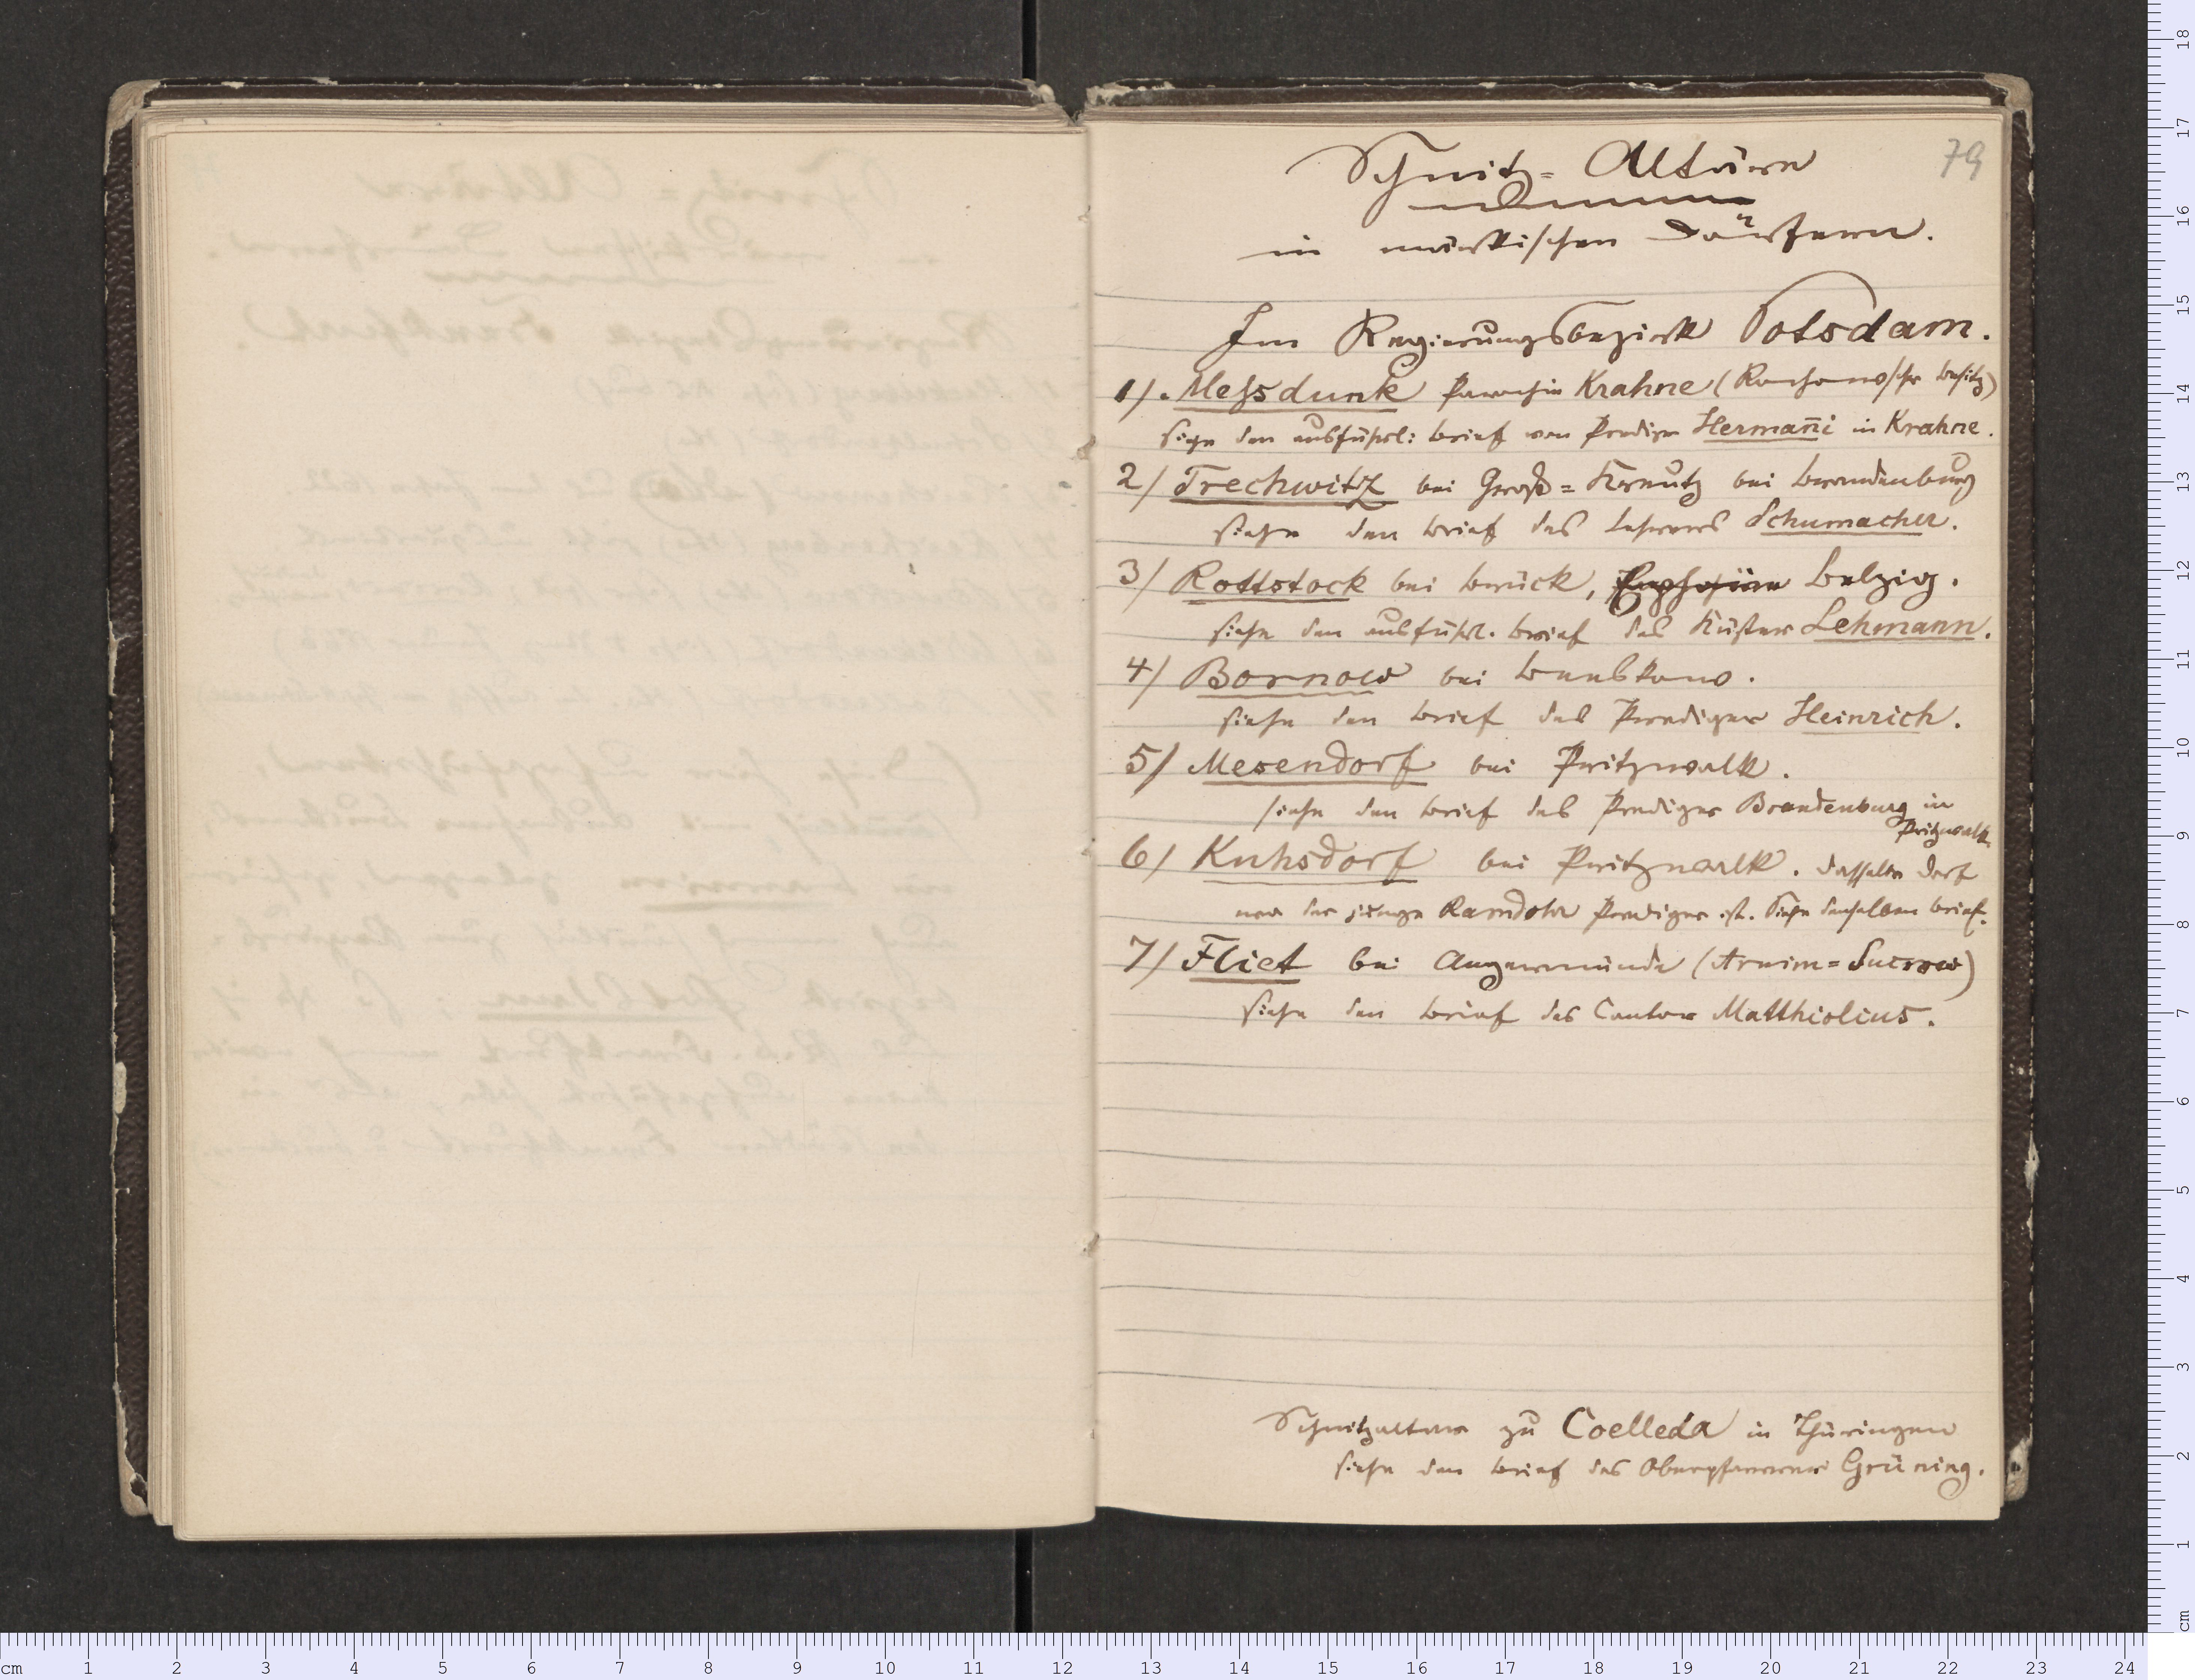 79
Schnitz-Altäre
in märkischen Dörfern.
Im Regierungsbezirk Potsdam.
1/. Messdunk Parochie Krahne (Rochowscher Besitz)
siehe den ausführl: Brief von Prediger Hermani in Krahne.
2/ Trechwitz bei Groß-Kreutz bei Brandenburg
siehe den Brief des Lehrers Schumacher.
3/ Rottstock bei Brück, Belzig.
siehe den ausführl. Brief des Küster Lehmann.
4/ Bornow bei Beeskow.
siehe den Brief des Prediger Heinrich.
5/ Mesendorf bei Pritzwalk.
siehe den Brief des Prediger Brandenburg in
Pritzwalk.
6/ Kuhsdorf bei Pritzwalk. dasselbe Dorf
wo der junge Ramdohr Prediger ist. Siehe denselben Brief.
7/ Fliet bei Angermünde (Arnim-Suckow)
siehe den Brief des Cantor Matthiolius.
Schnitzaltar zu Coelleda in Thüringen
siehe den Brief des Oberpfarrers Grüning.
cm 1 2 3 4 5 6 7 8 9 10 11 12 13 14 15 16 17 18 19 20 21 22 23 24
cm 1 2 3 4 5 6 7 8 9 10 11 12 13 14 15 16 17 18